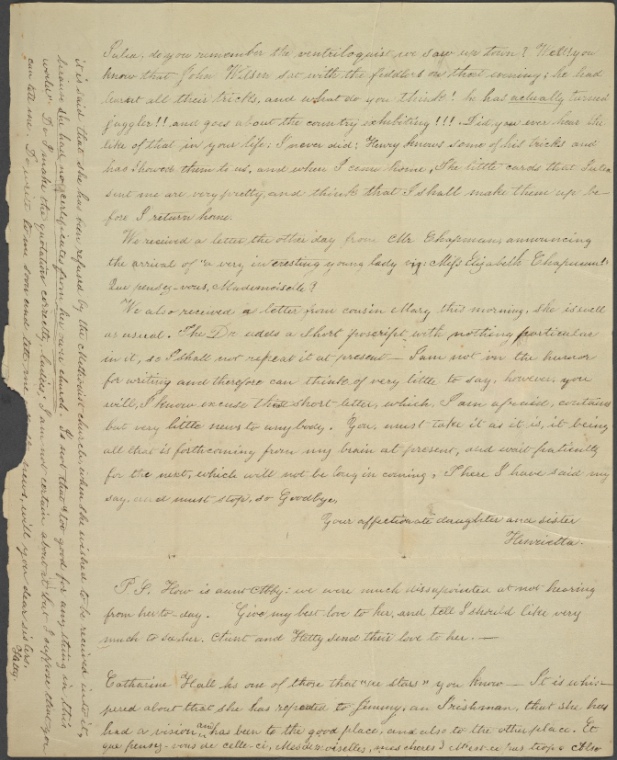 Julia, do you remember the ventriloquist we saw up town? Well! you
know that John Wilson sat with the fiddlers on that evening; he had
learnt all their tricks, and what do you think! he has actually turned
juggler!! and goes about the country exhibiting!!! Did you ever hear the
like of that in your life, I never did: Henry knows some of his tricks and
has showed them to us, and when I come home, The little cards that Julia
sent me are very pretty and think that I shall make them up be-
fore I return home.
We received a letter the other day from Mr Chapman announcing
the arrival of "a very interesting young lady viz: Miss Elizabeth Chapman!"
Que pensez-vous, Mademoiselle?
We also received a letter from cousin Mary this morning, she is well
as usual. The Dr adds a short poscript with nothing particular
in it, so I shall not repeat it at present — I am not in the humor
for writing and therefore can think of very little to say, however you
will, I know excuse this short letter, which, I am afraid, contains
but very little news to anybody. You must take it as it is, it being
all that is forthcoming from my brain at present, and wait patiently
for the next, which will not be long in coming, There I have said my
say, and must stop, so Goodbye,
Your affectionate daughter and sister
Henrietta.
P.S. How is aunt Abby - we were much dissapointed at not hearing
from her to-day. Give my best love to her, and tell I should like very
much to see her. Aunt and Hetty send their love to her. —
Catharine Hall is one of those that "see stars" you know — It is whis-
pered about that she has to Jimmy, an Irishman, that she has
had a vision and has been to the good place, and also to the other place. Et
que pensez-vous de celle-ci, Mesdemoiselles, mes cheres? N'est-ce pas trop? Also
it is said that she has been refused by the Methodist church, when she wished to be received into it,
because she had no certificate from her own church. Is not that "too good for any thing in this
world". Do I make the quotation correctly, ladies; I am not certain about it but I suppose that you
can tell me. Do write to me soon and tell me news, will you dear sisters.